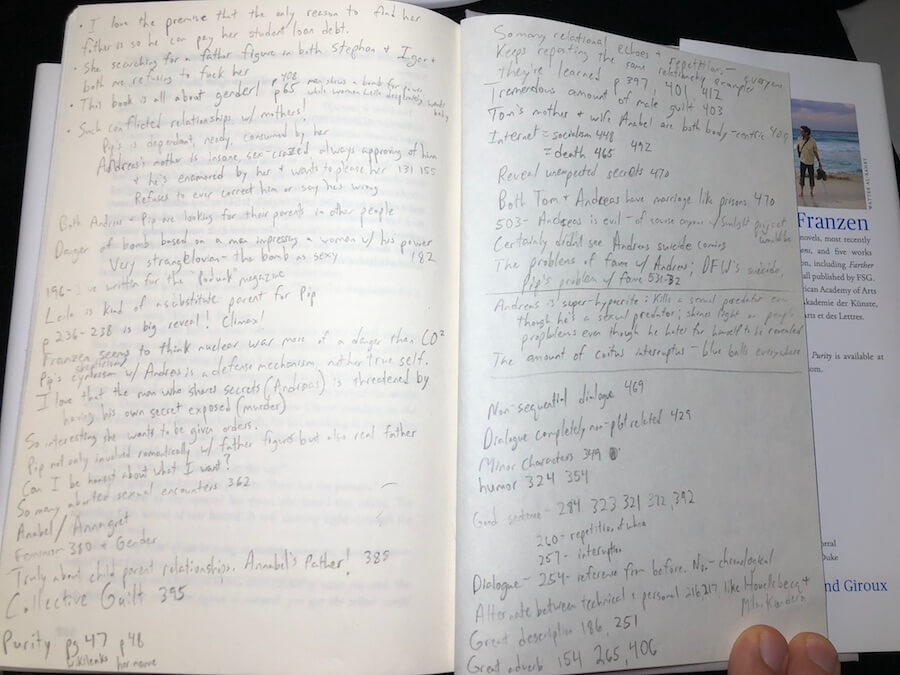 • I love the premise that the only reason to find her
father is so he can pay her student loan debt.
• She searching for a father figure in both Stephan + Igor +
both are refusing to fuck her
• This book is all about gender! p65, p408 men shows a bomb for power
while women Leila desperately wants baby
• Such conflicted relationships w/ mothers!
Pip's is dependant, needy, consumed by her
Andreas's mother is insane, sex-crazed always approving of him
+ he's enamored by her + wants to please her 131 155
Refuses to ever correct him or say he's wrong
Both Andreas + Pip are looking for their parents in other people
Danger of bomb based on a man impressing a woman w/ his power
Very strangelovian - the bomb as sexy 182
196 - I've written for the "Poduck" magazine
Leila is kind of a substitute parent for Pip
p 236-238 is big reveal! Climax!
Franzen seems to think nuclear war more of a danger than CO2
Pip's cynicism skepticism w/ Andreas is a defense mechanism, not her true self.
I love that the man who shares secrets (Andreas) is threatened by
having his own secret exposed (murder)
So interesting she wants to be given orders.
Pip not only involved romantically w/ father figures but also real father
Can I be honest about what I want?
So many aborted sexual encounters 362
Anabel / Annagret
Feminism 380 + Gender
Truly about child parent relationships. Annabel's Father! 385
Collective Guilt 395
Purity pg 47 p48
wikileaks her name
So many relational echoes + repetition - everyone
keeps repeating the same relationship examples
they're learned p 397, 401, 412
Tremendous amount of male guilt 403
Tom's mother + wife Anabel are both body-centric 409
Internet = socialism 448
= death 465 492
Reveal unexpected secrets 470
Both Tom + Andreas have marriage like prisons 470
503 - Andreas is evil - of course anyone w/ Sunlight project would be
Certainly didn't see Andreas suicide coming
The problems of fame w/ Andreas; DFW's suicide,
Pip's problem w/ fame 531-32
Andreas is super-hypocrite: Kills a sexual predator even
though he's a sexual predator; shines light on people
propblems even though he hates for himself to be revealed
The amount of coitus interruptus - blue balls everywhere
Non-sequential dialogue 469
Dialogue completely non-plot related 429
Minor characters 349
humor 324 354
Good sentence - 284 323 321 322, 392
260 - repetition of
257 - interruption
Dialogue - 254 - reference from before. Non-chronological
Alternate between technical + personal 216 217 like Houellebecq +
Milan Kundera
Great description 186, 251
Great adverb 154 265, 406
WATTIE ALSHARIF
Franzen
novels, most recently
ons, and five works
on, including Farther
all published by FSG.
rican Academy of Arts
Akademie der Künste,
Arts et des Lettres.
Purity is available at
om.
oral
Duke
nd Giroux